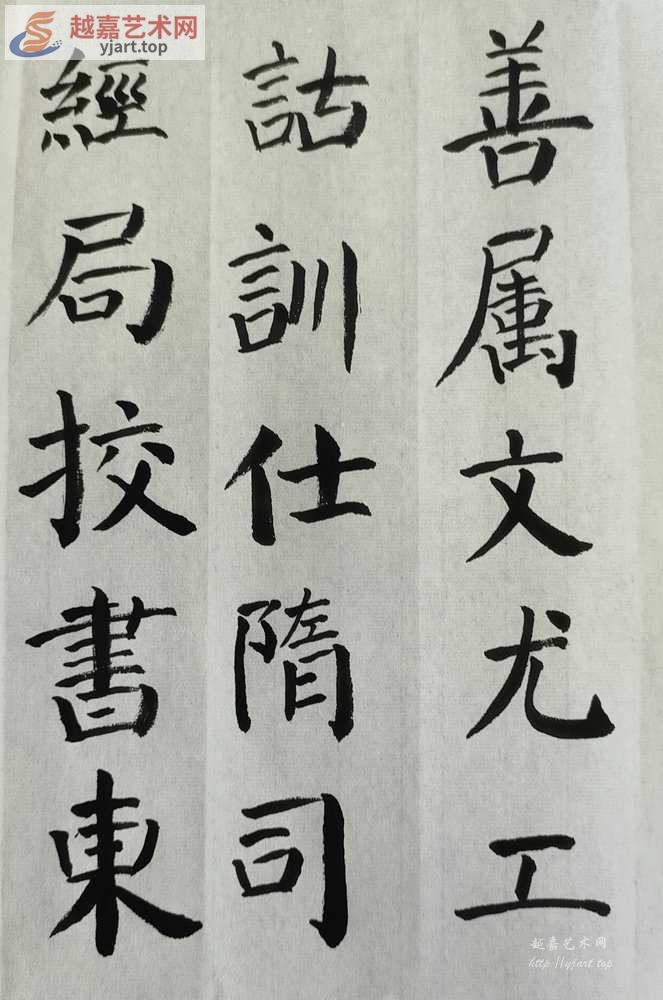 善属文尤工
詁訓仕隋司
經局挍書東
越嘉艺术网
yjart.top
越嘉艺术网
http://yjart.top